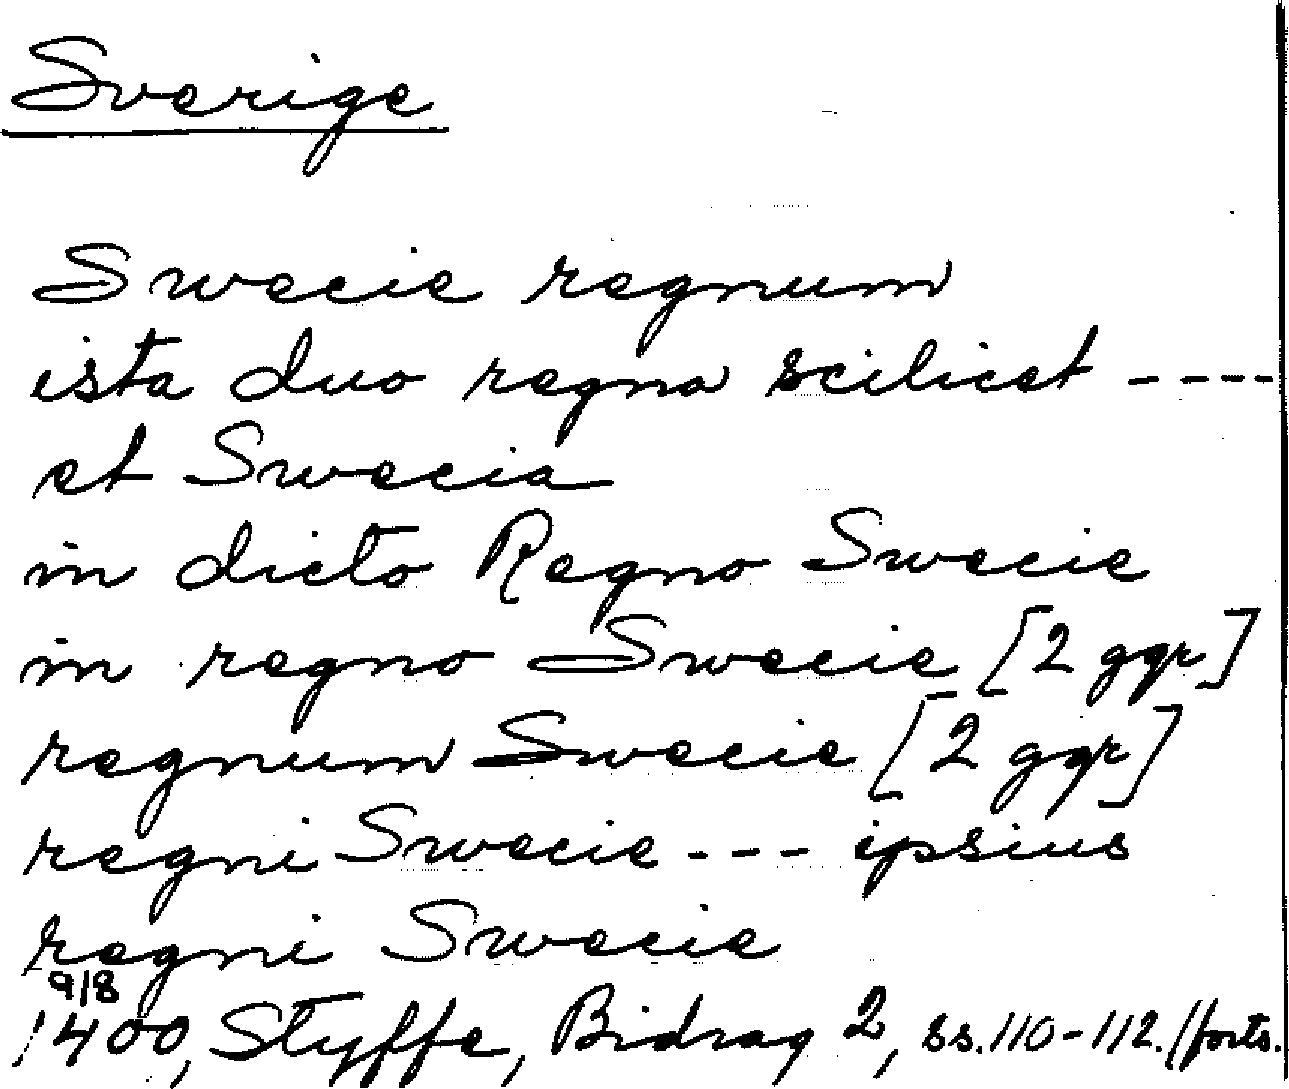 Sverige
Swecie regnum
ista duo regna scilicet ----
et Swecia
in dicto Regno Swecie
in regno Swecie [2 ggr]
regnum Swecie [2 ggr]
regni Swecie --- ipsius
regni Swecie
9/8
1400, Styffe, Bidrag 2, ss. 110-112. //forts.